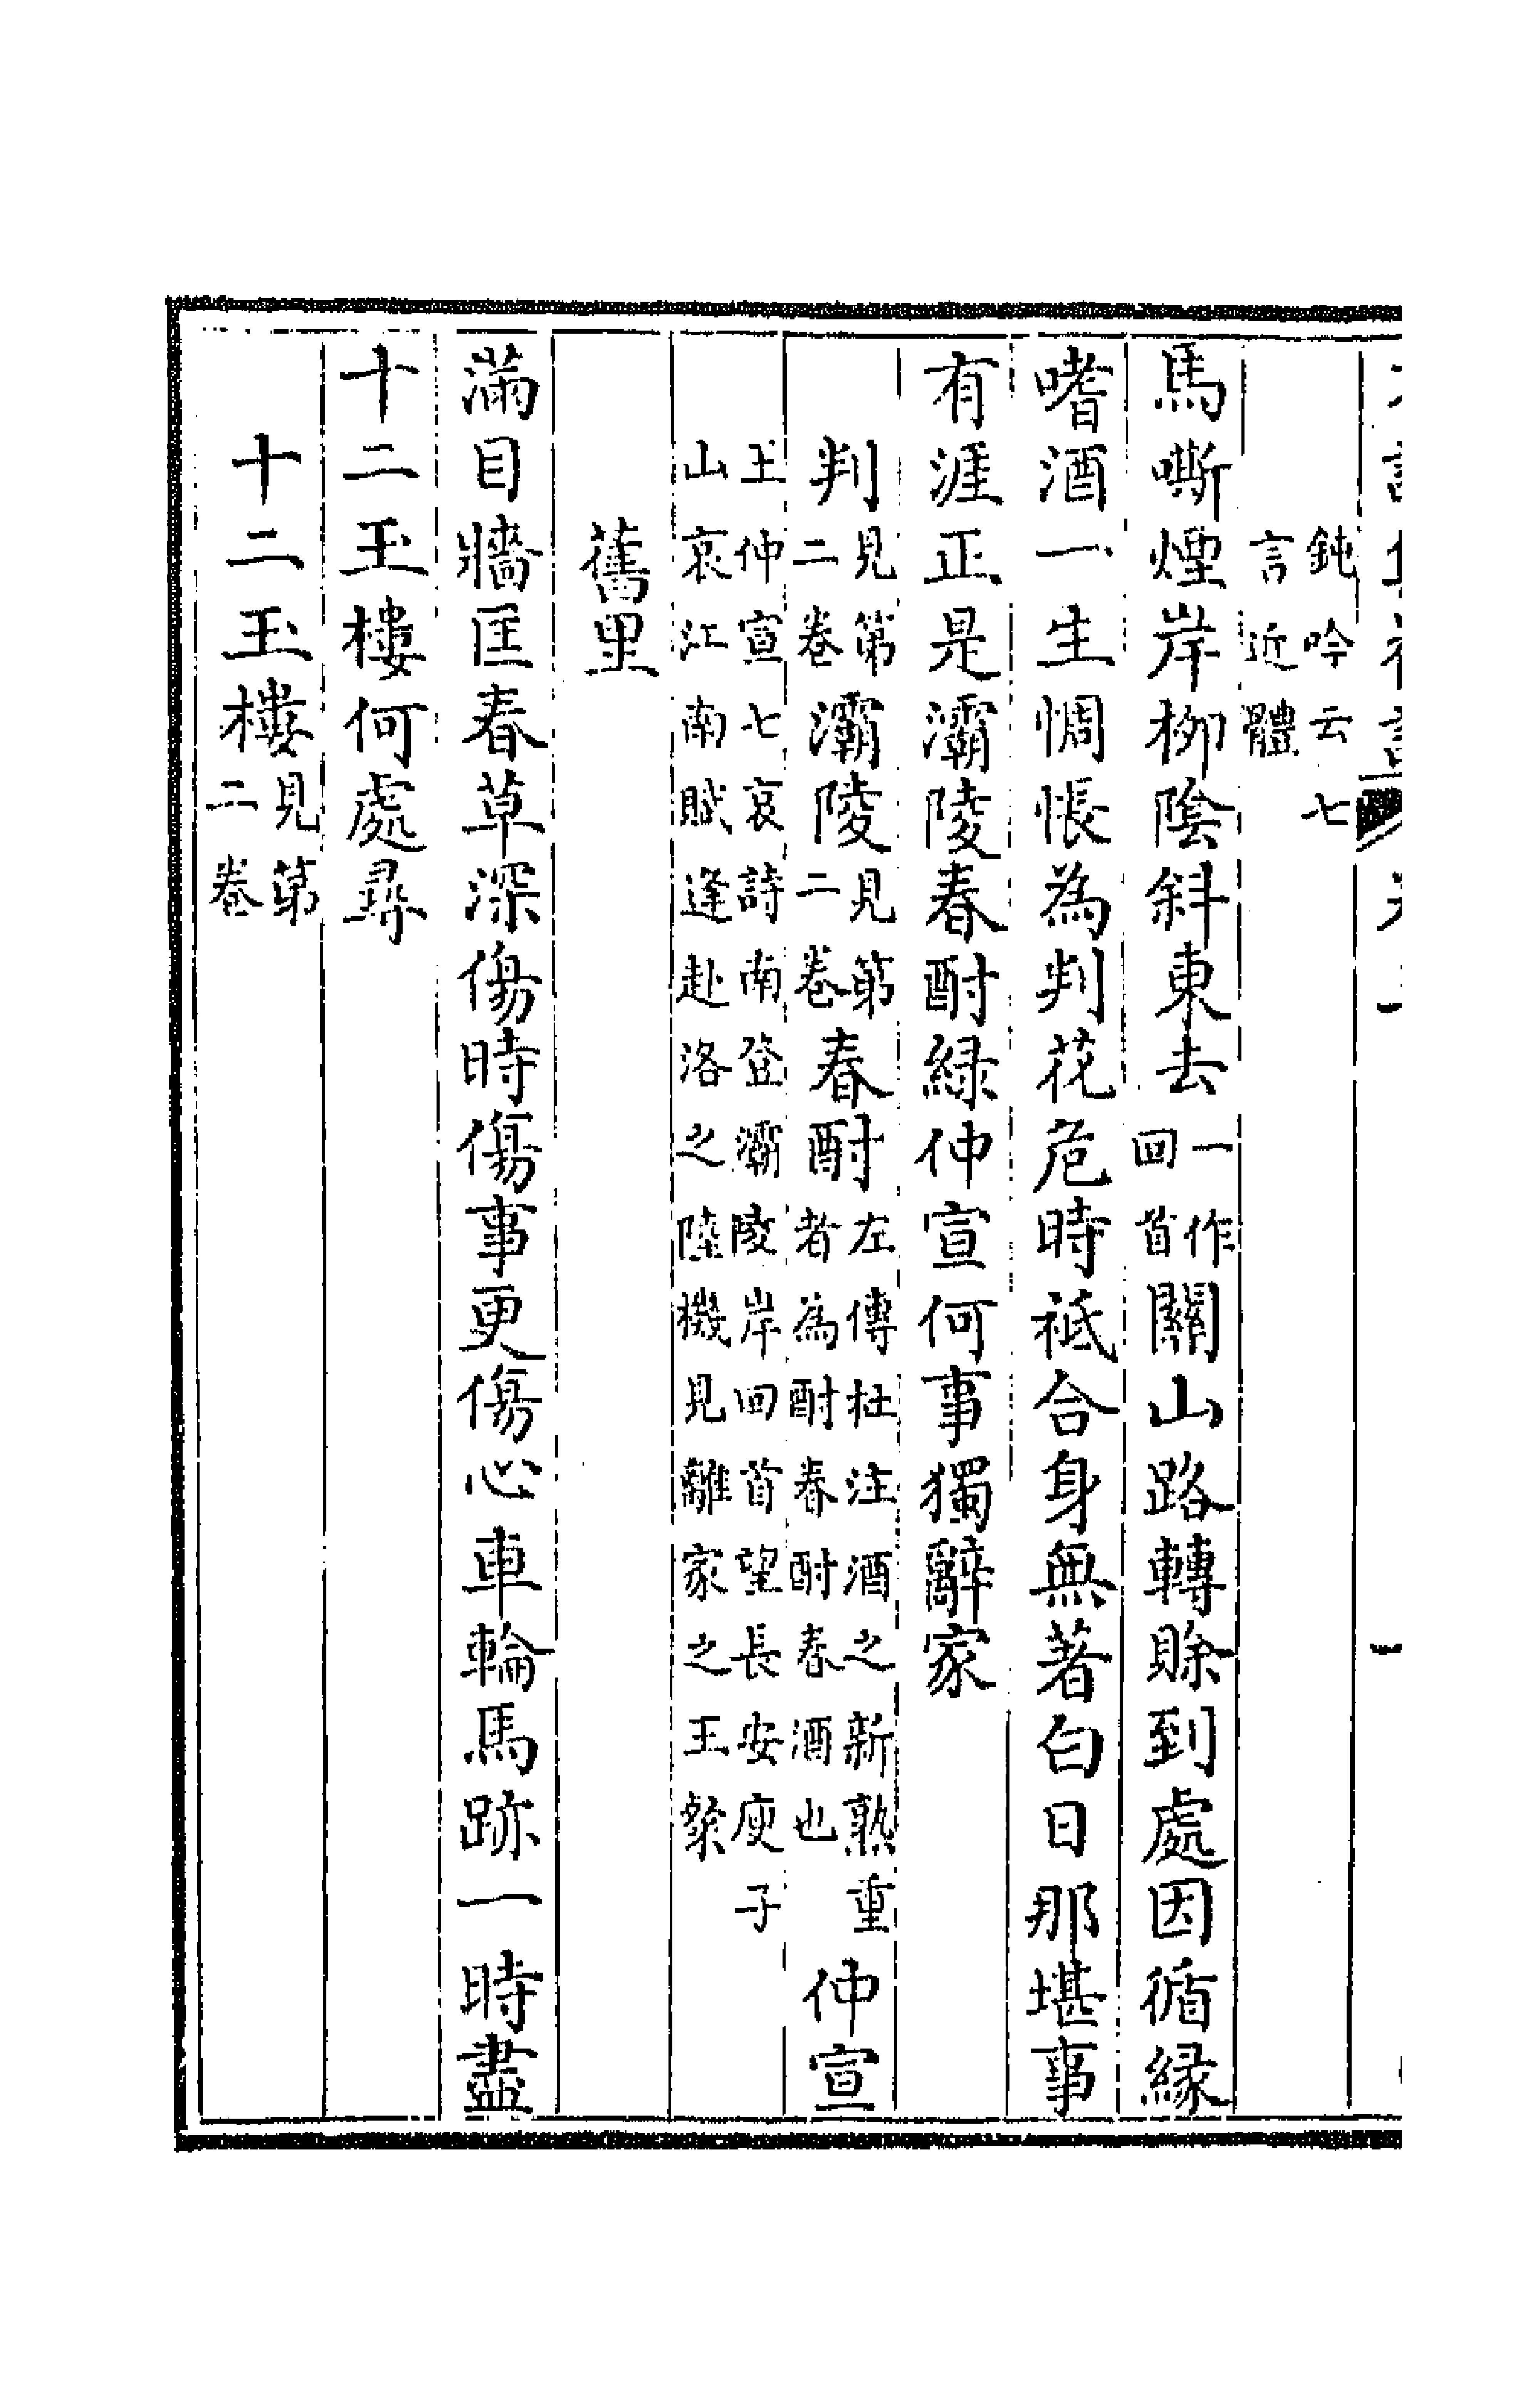 鈍吟云七言近體
馬嘶煙岸柳陰斜東去一作回首關山路轉賒到處因循縁
嗜酒一生惆悵為判花危時祇合身無著白日那堪事
有涯正是灞陵春酎緑仲宣何事獨辭家
判見第二卷灞陵見第二卷春酎左傳杜注酒之新熟重者為酎春酎春酒也仲宣
王仲宣七哀詩南登灞陵岸回首望長安庾子山哀江南賦逢赴洛之陸機見離家之王粲
舊里
滿目牆匡春草深傷時傷事更傷心車輪馬跡一時盡
十二玉樓何處尋
十二玉樓見第二卷